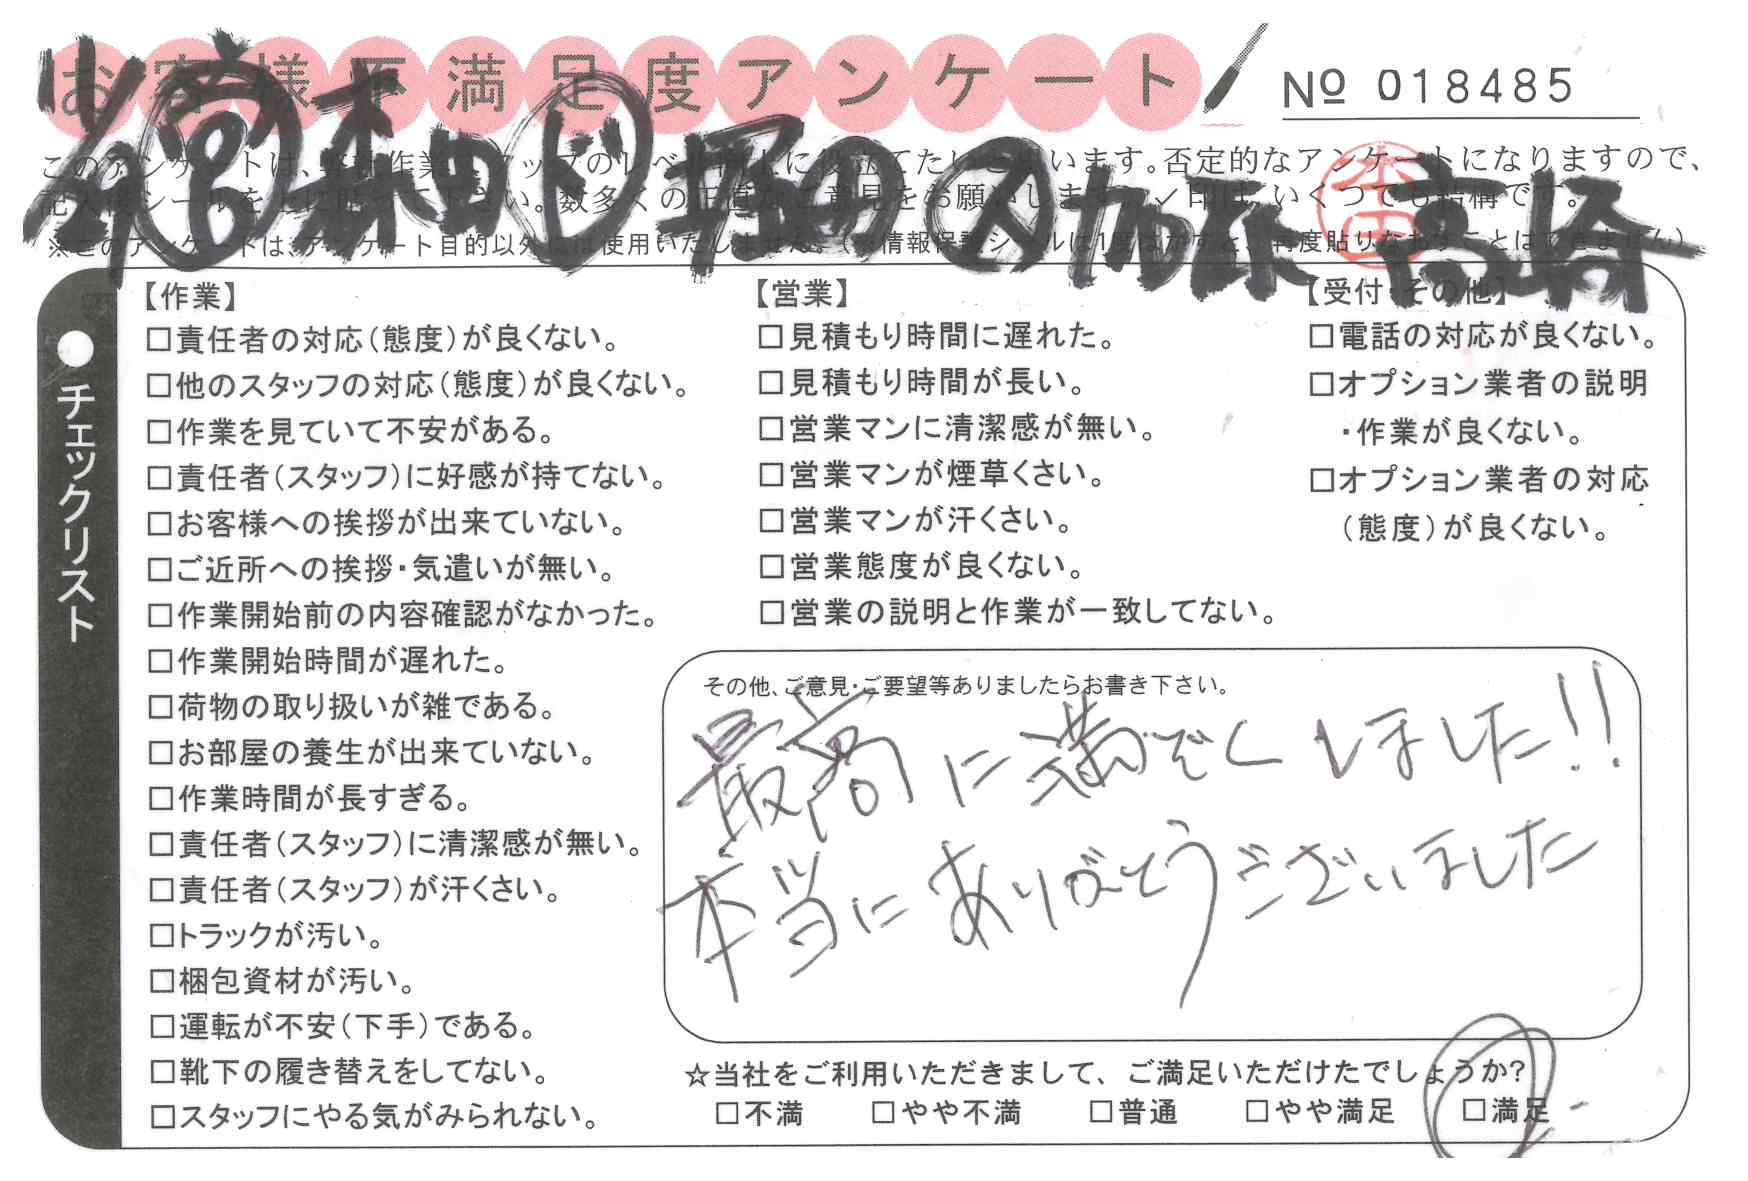 お客様不満足度アンケート
№ 018485
このアンケートは、作業スタッフのレベル向上に役立てたいと思います。否定的なアンケートになりますので、
記入後シールを上に貼って下さい。数多くの正直なご意見をお願いします。✓印は、いくつでも結構です。
※このアンケートは、アンケート目的以外には使用いたしません。(※情報保護シールは1度はがすと、再度貼りなおすことはできません)
29 営 森田 ド 堀田 メ 加藤 高崎
本田
●チェックリスト
【作業】
□責任者の対応(態度)が良くない。
□他のスタッフの対応(態度)が良くない。
□作業を見ていて不安がある。
□責任者(スタッフ)に好感が持てない。
□お客様への挨拶が出来ていない。
□ご近所への挨拶・気遣いが無い。
□作業開始前の内容確認がなかった。
□作業開始時間が遅れた。
□荷物の取り扱いが雑である。
□お部屋の養生が出来ていない。
□作業時間が長すぎる。
□責任者(スタッフ)に清潔感が無い。
□責任者(スタッフ)が汗くさい。
□トラックが汚い。
□梱包資材が汚い。
□運転が不安(下手)である。
□靴下の履き替えをしてない。
□スタッフにやる気がみられない。
【営業】
□見積もり時間に遅れた。
□見積もり時間が長い。
□営業マンに清潔感が無い。
□営業マンが煙草くさい。
□営業マンが汗くさい。
□営業態度が良くない。
□営業の説明と作業が一致してない。
【受付・その他】
□電話の対応が良くない。
□オプション業者の説明
・作業が良くない。
□オプション業者の対応
(態度)が良くない。
その他、ご意見・ご要望等ありましたらお書き下さい。
最高に満ぞくしました!!
本当にありがとうございました
☆当社をご利用いただきまして、ご満足いただけたでしょうか?
□不満 □やや不満 □普通 □やや満足 □満足